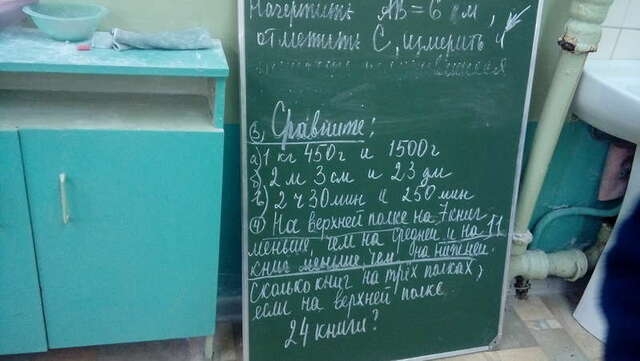 Начертить AB = 6 см,
отметить С, измерить и
3, Сравните:
а) 1 кг 450г и 1500г
б) 2 м 3 см и 23 дм
в) 2 ч 30мин и 250 мин
4) На верхней полке на 7 книг
меньше, чем на средней и на 11
книг меньше, чем на нижней.
Сколько книг на трёх полках,
если на верхней полке
24 книги?